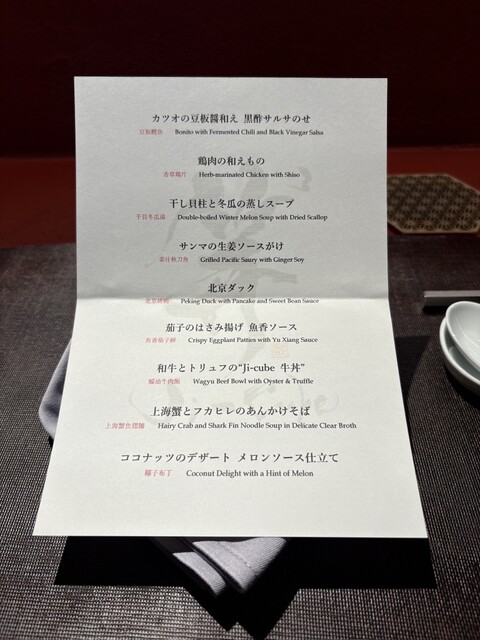 カツオの豆板醤和え 黒酢サルサのせ
豆板鰹魚 Bonito with Fermented Chili and Black Vinegar Salsa
鶏肉の和えもの
香草鶏片 Herb-marinated Chicken with Shiso
干し貝柱と冬瓜の蒸しスープ
干貝冬瓜湯 Double-boiled Winter Melon Soup with Dried Scallop
サンマの生姜ソースがけ
姜汁秋刀魚 Grilled Pacific Saury with Ginger Soy
北京ダック
北京烤鴨 Peking Duck with Pancake and Sweet Bean Sauce
茄子のはさみ揚げ 魚香ソース
魚香茄子餅 Crispy Eggplant Patties with Yu Xiang Sauce
和牛とトリュフの“Ji-cube 牛丼”
蠔油牛肉飯 Wagyu Beef Bowl with Oyster & Truffle
上海蟹とフカヒレのあんかけそば
上海蟹魚翅麺 Hairy Crab and Shark Fin Noodle Soup in Delicate Clear Broth
ココナッツのデザート メロンソース仕立て
椰子布丁 Coconut Delight with a Hint of Melon